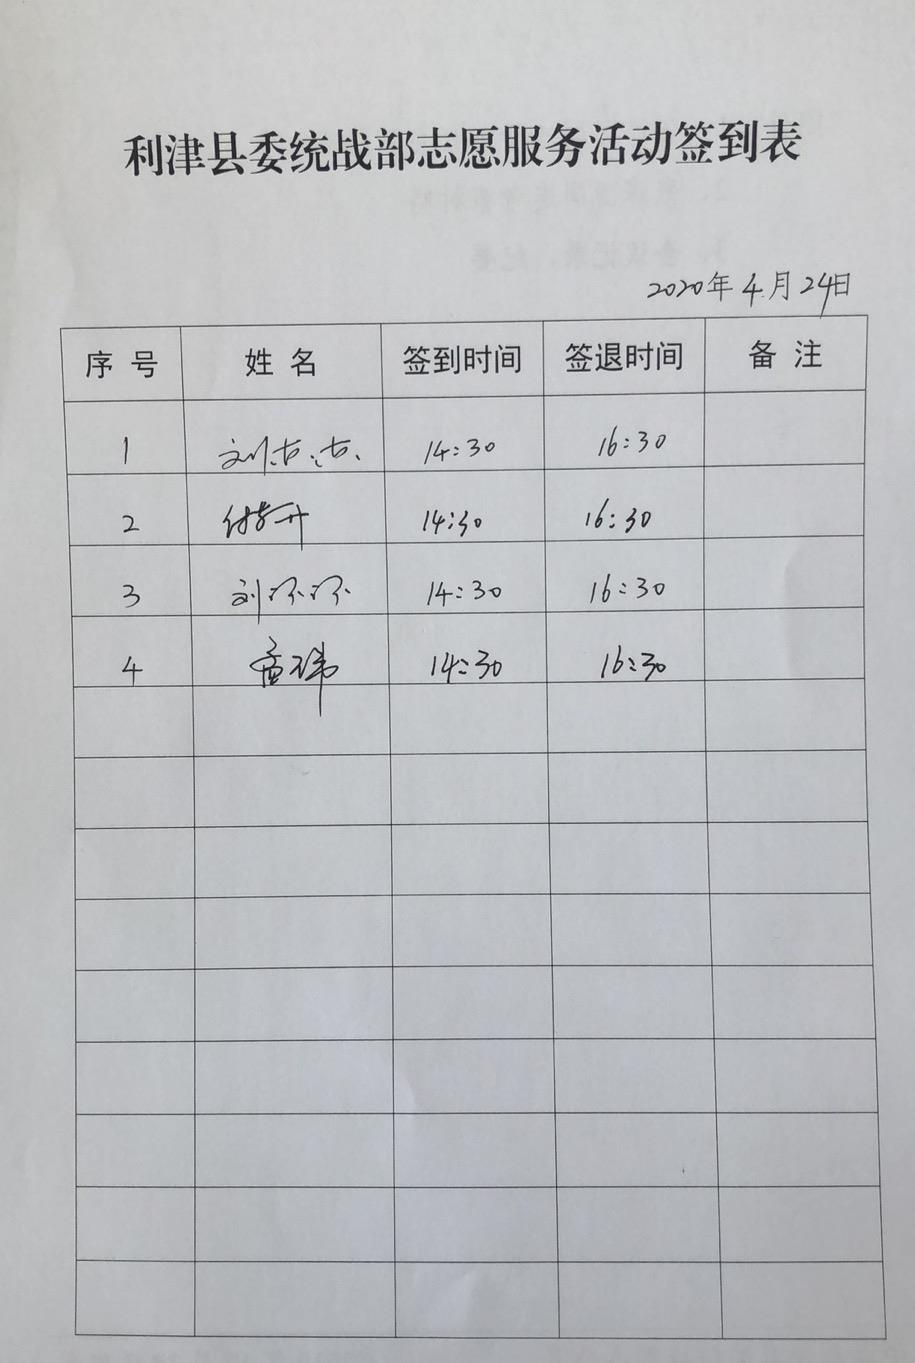 利津县委统战部志愿服务活动签到表
2020年4月24日
序号 姓名 签到时间 签退时间 备注
1 刘 14:30 16:30
2 14:30 16:30
3 刘环环 14:30 16:30
4 14:30 16:30